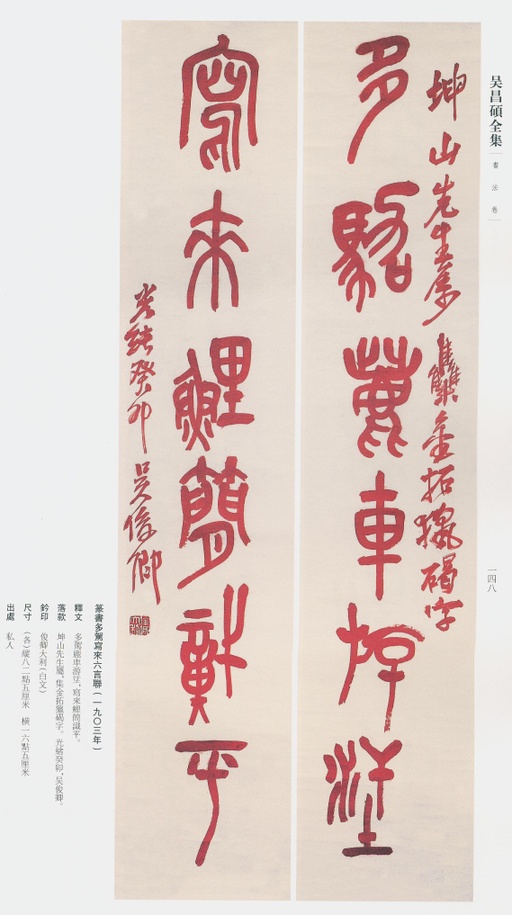 吴昌碩全集
書法卷
一四八
坤山先生屬 集金拓獵碣字
多駕車游
寫來鯉簡識平
光緒癸卯 吳俊卿
篆書多駕寫來六言聯（一九〇三年）
釋文 多駕車游，寫來鯉簡識平。
落款 坤山先生屬，集金拓獵碣字。光緒癸卯，吳俊卿。
鈐印 俊卿大利（白文）
尺寸 （各）縱八二點五厘米 橫一六點五厘米
出處 私人